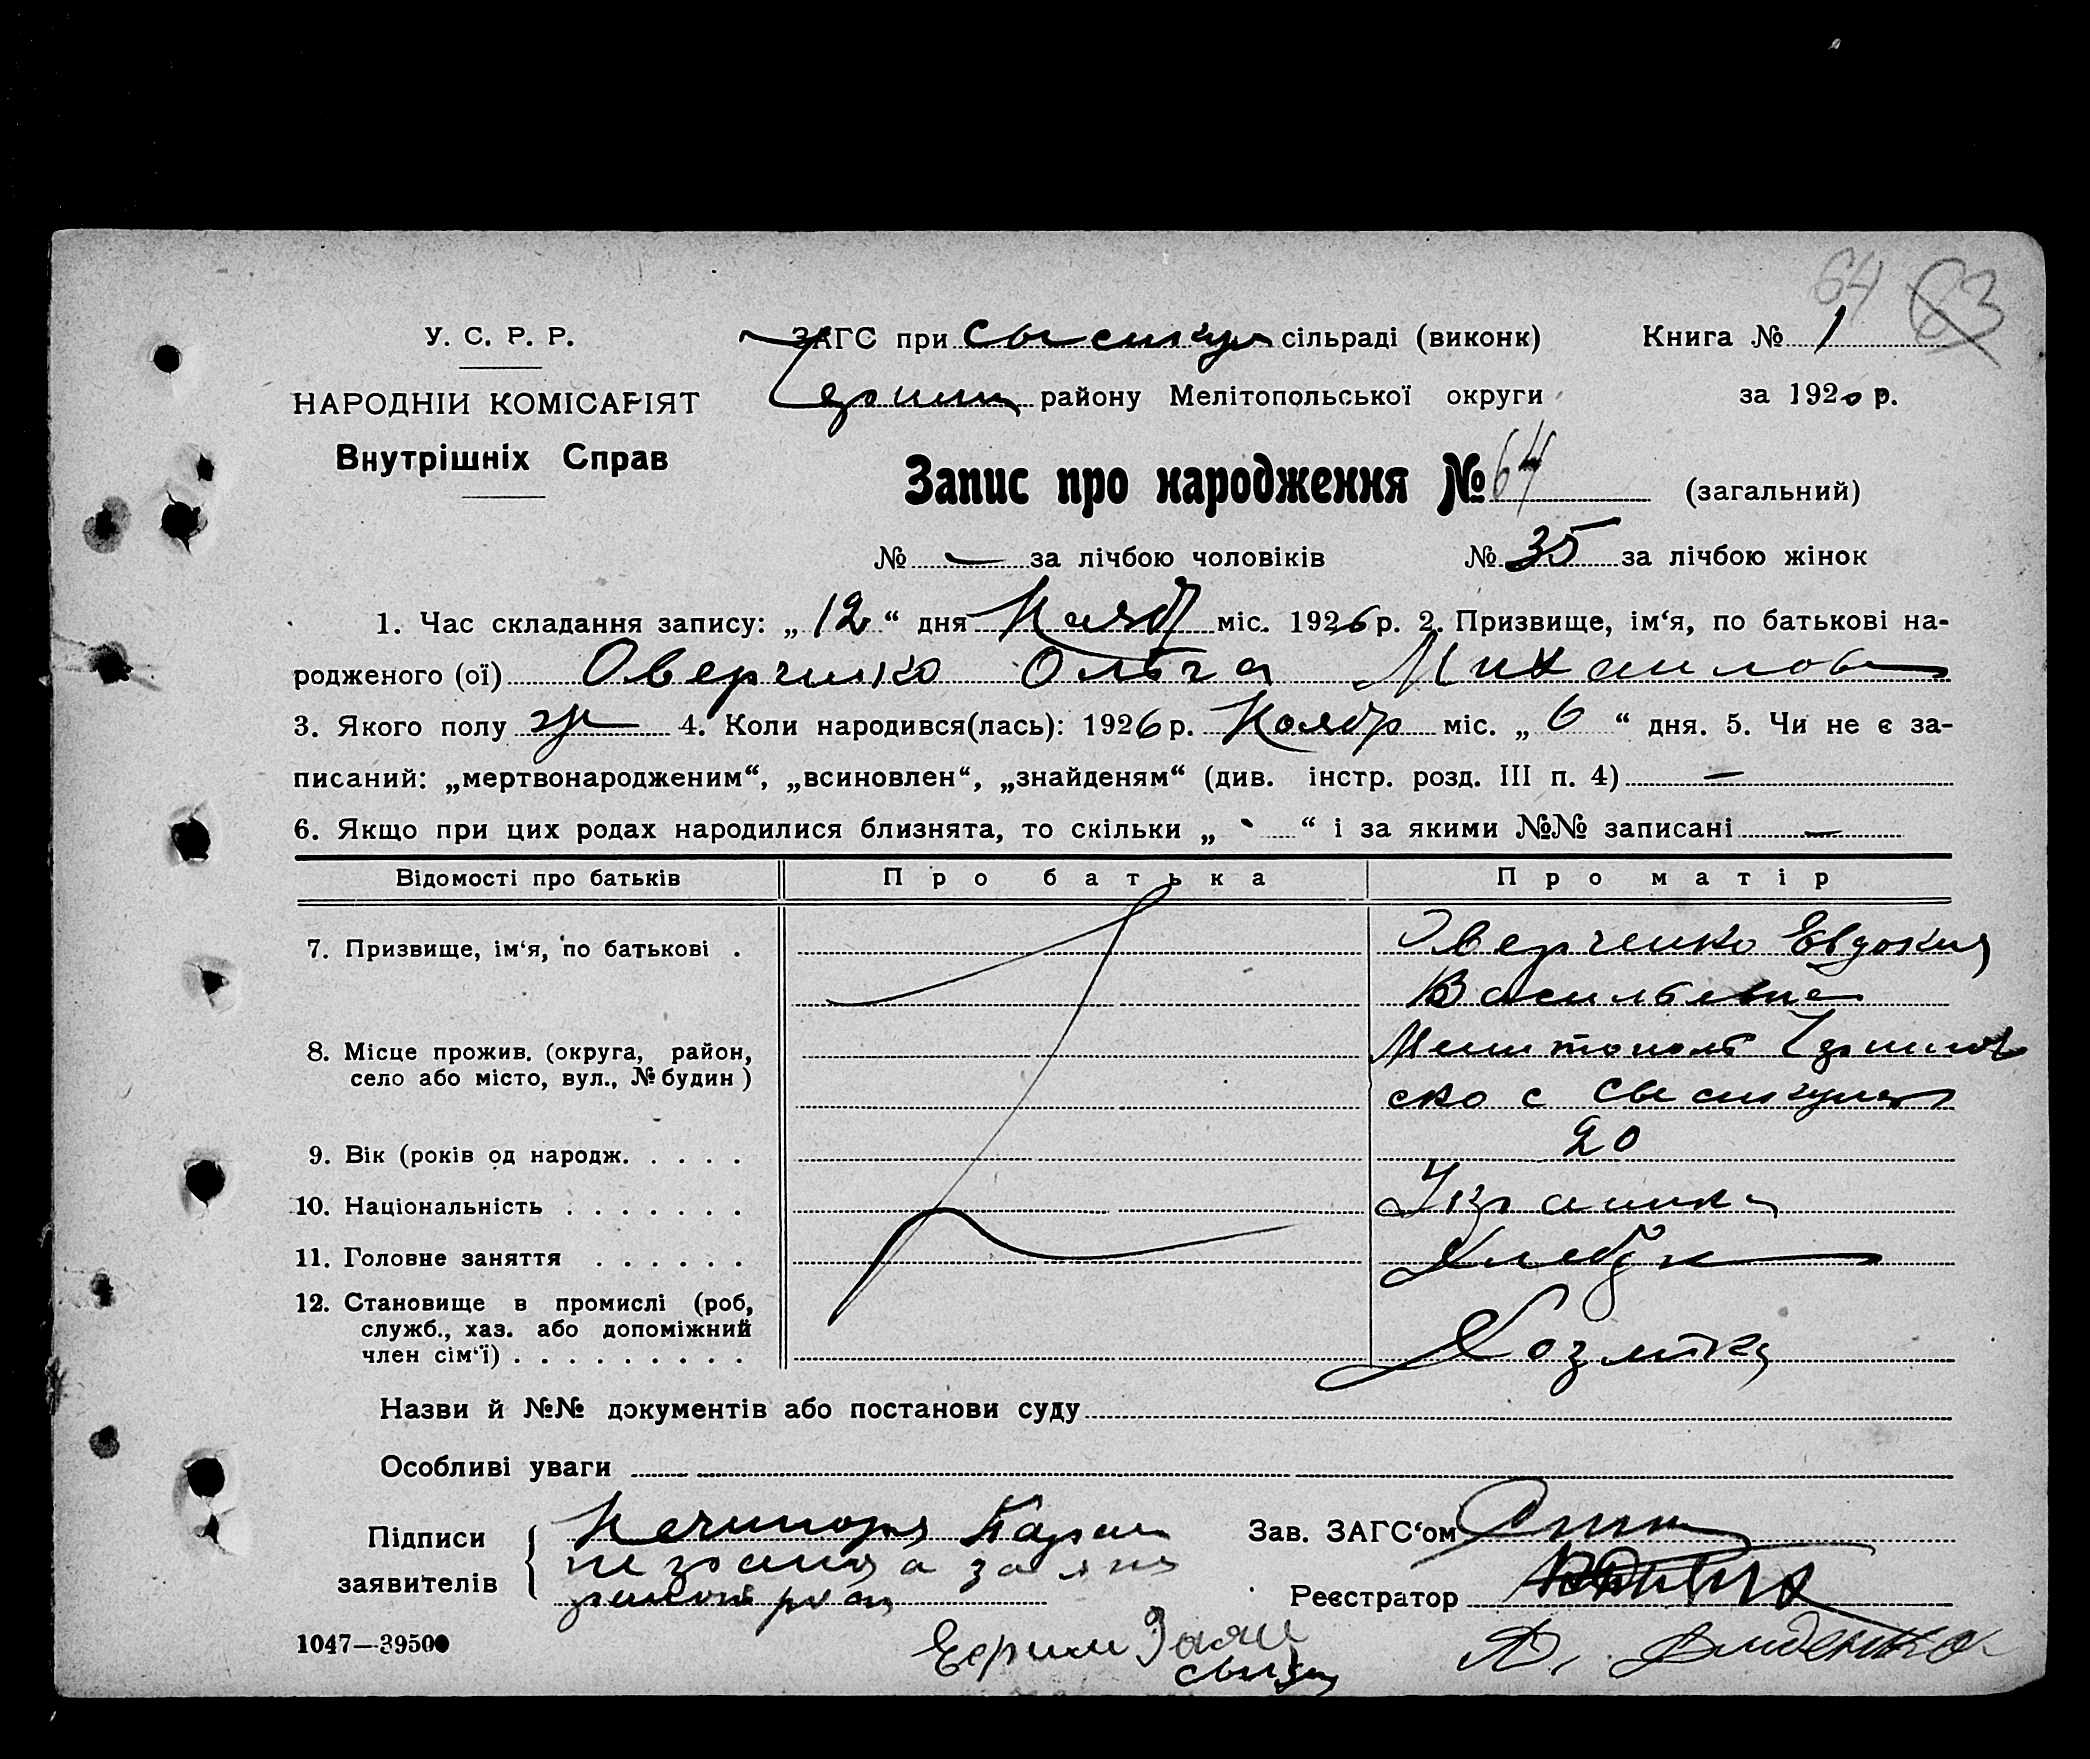 64 63
У. С. Р. Р.
ЗАГС при сільраді (виконк) Книга № 1
НАРОДНІЙ КОМІСАРІЯТ
району Мелітопольської округи за 1926 р.
Внутрішніх Справ
Запис про народження № 64 (загальний)
№ — за лічбою чоловіків № 35 за лічбою жінок
1. Час складання запису: „12“ дня Нояб міс. 1926 р. 2. Призвище, ім‘я, по батькові на-
родженого (ої) Оверченко Ольга Михаилов
3. Якого полу ж 4. Коли народився(лась): 1926 р. Ноябр міс. „6“ дня. 5. Чи не є за-
писаний: „мертвонародженим“, „всиновлен“, „знайденям“ (див. інстр. розд. III п. 4) —
6. Якщо при цих родах народилися близнята, то скільки „ “ і за якими №№ записані —
Відомості про батьків Про батька Про матір
7. Призвище, ім‘я, по батькові . Оверченко Евдокия
Васильевна
8. Місце прожив. (округа, район, Мелитополь
село або місто, вул., № будин) ско с
9. Вік (років од народж. . . . . 20
10. Національність . . . . . . . Украинка
11. Головне заняття . . . . . . Хлебор
12. Становище в промислі (роб,
служб., хаз. або допоміжний
член сім‘ї) . . . . . . . . . Хозяйка
Назви й №№ документів або постанови суду
Особливі уваги
Підписи Зав. ЗАГС‘ом
заявителів
Реєстратор
1047—39500